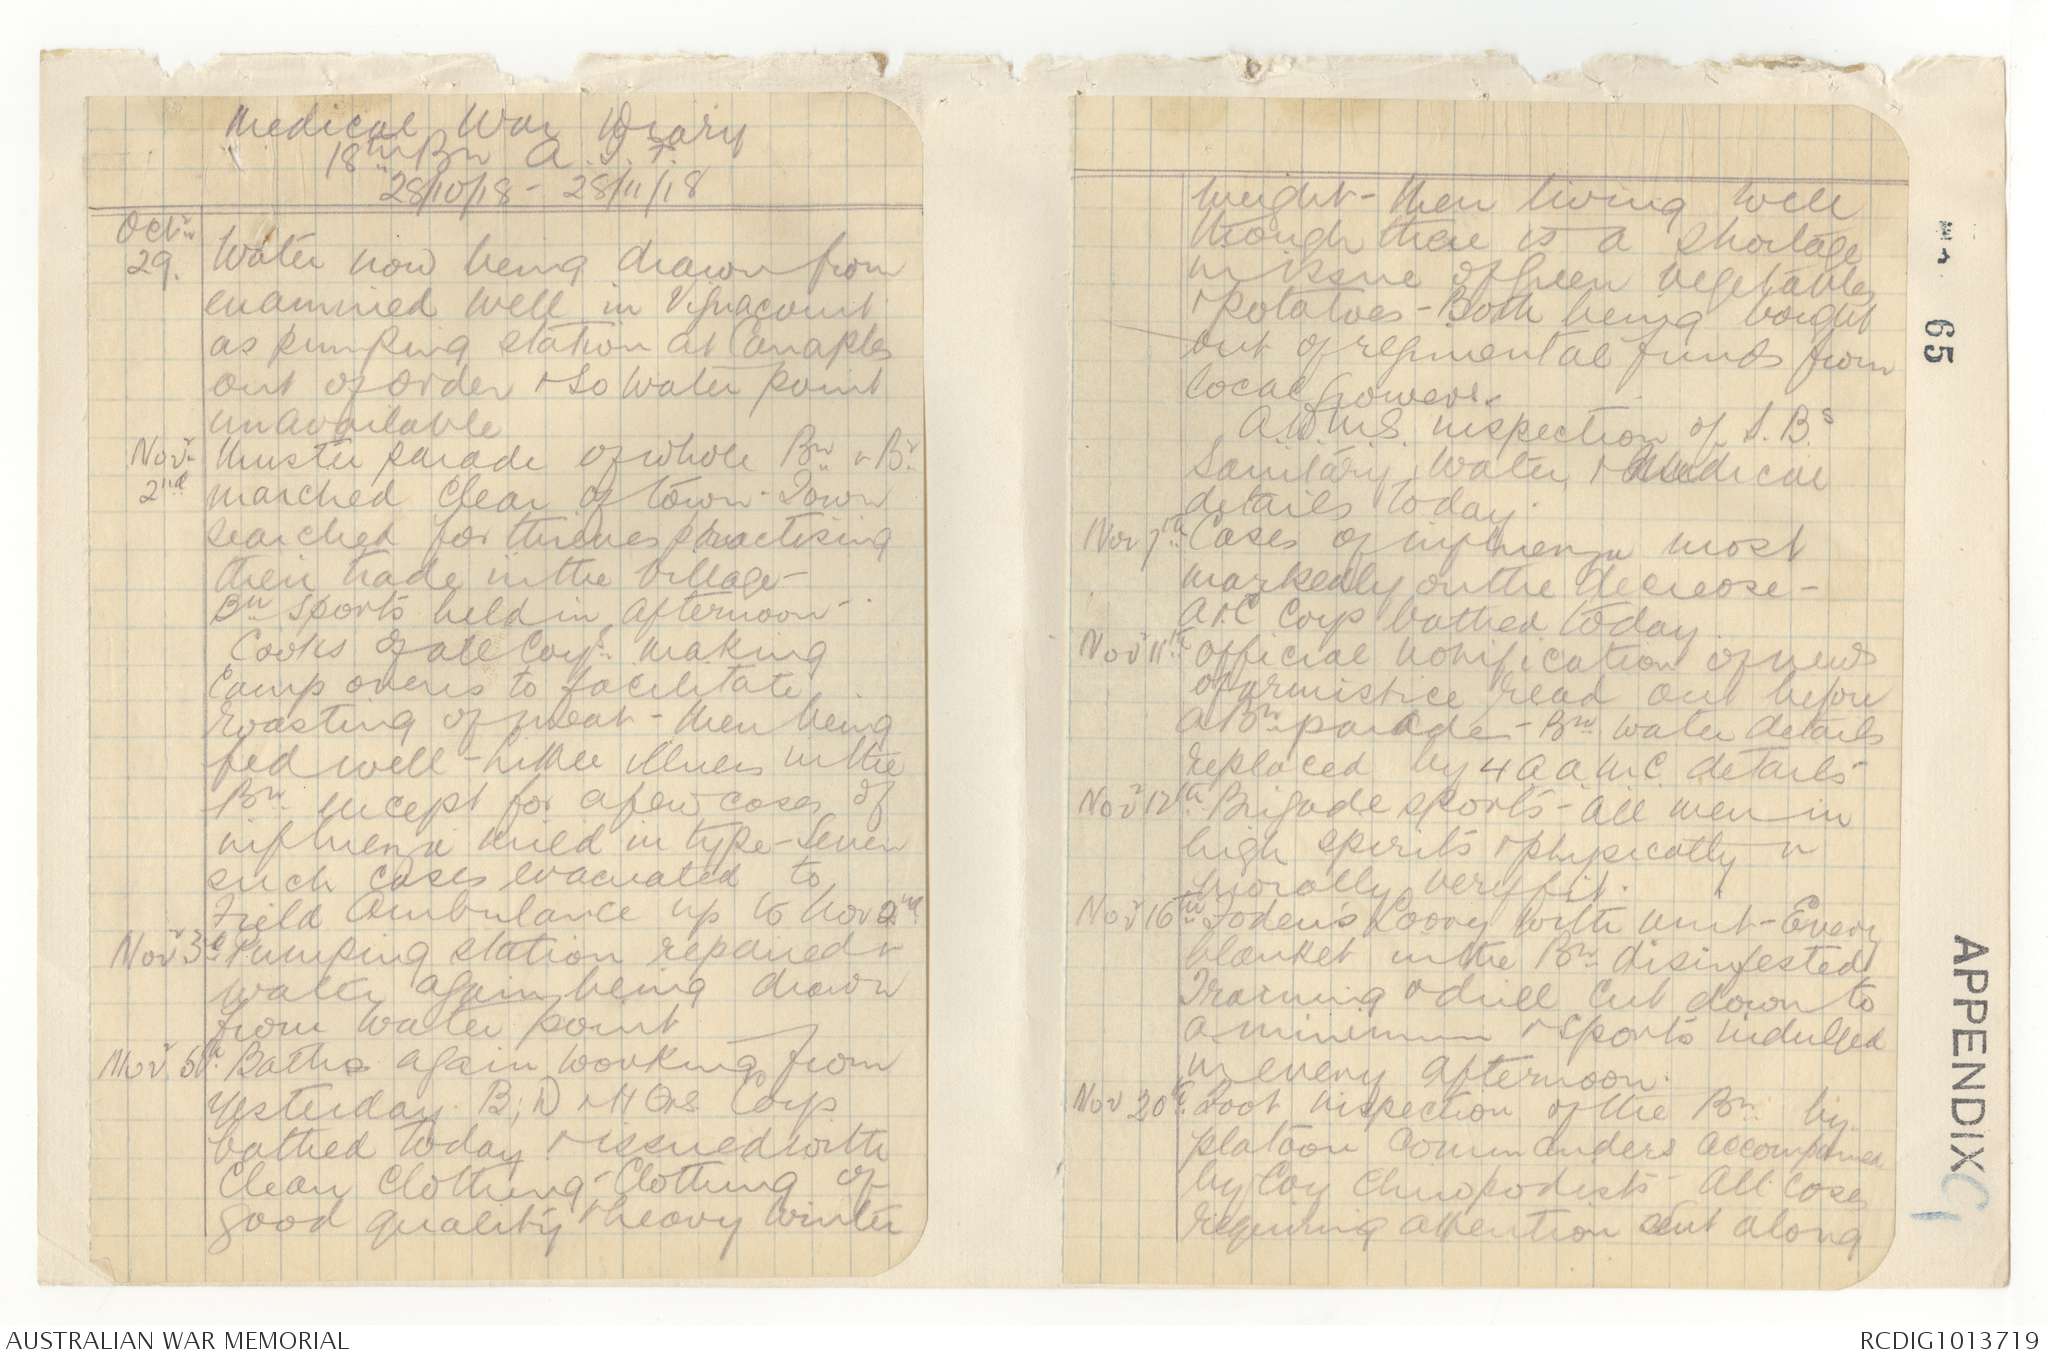 Medical War Diary
18th Bn A.I.F.
28/10/18 - 28/11/18
Octr
29. Water now being drawn from
examined well in Vignacourt
as pumping station at Canaples
out of order & so water point
unavailable
Novr 2nd Muster parade of whole Bn & Bn
marched clear of town - Town
searched for thieves practising
their trade in the village -
Bn sports held in afternoon -
Cooks of all Coys making
Camp ovens to facilitate
roasting of meat - Men being
fed well - Little illness in the
Bn except for a few cases of
influenza mild in type - Seven
such cases evacuated to
Field Ambulance up to Nov 2nd.
Novr 3d Pumping station repaired &
water again being drawn
from water point
Novr 5th Baths again working from
yesterday. B, D & HQrs Coys
bathed today & issued with
Clean Clothing - Clothing of
good quality & heavy winter
weight - Men living well
though there is a shortage
in issue of Green vegetables
& potatoes - Both being bought
out of regimental funds from
local growers.
A.D.M.S. inspection of S.Bs
Sanitary, Water, & Medical
details today.
Nov 7th Cases of influenza most
markedly on the decrease -
A & C Coys bathed today.
Novr 11th Official notification of news
of armistice read out before
a Bn parade - Bn water details
replaced by 4 A.A.M.C. details -
Novr 12th Brigade sports - All men in
high spirits & physically &
morally very fit.
Novr 16th Foden's Lorry with unit - Every
blanket in the Bn disinfested
Training & drill cut down to
a minimum & sports indulged
in every afternoon.
Nov 20th Foot inspection of the Bn by
platoon Commanders accompanied
by Coy Chiropodists - All cases
requiring attention sent along
65
APPENDIX G
AUSTRALIAN WAR MEMORIAL
RCDIG1013719